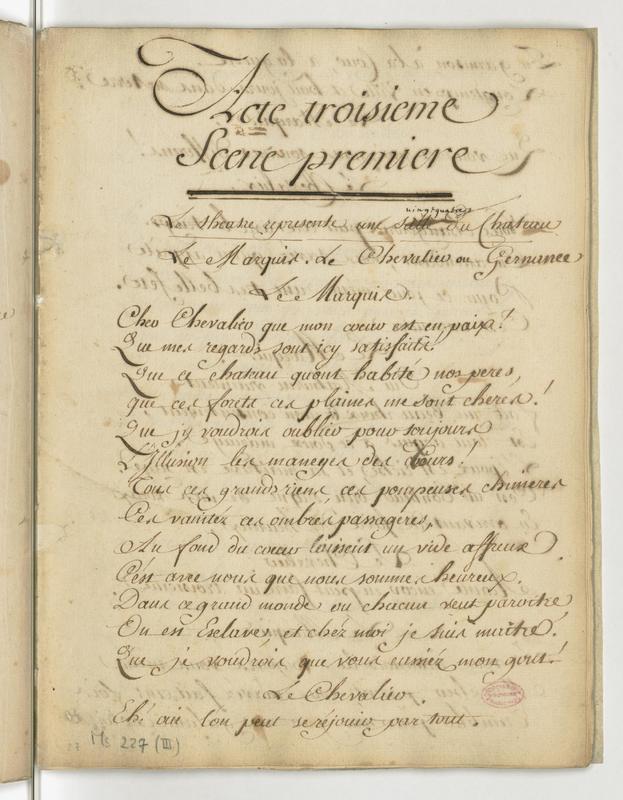 Acte troisieme
Scene premiere
vingtquatre
Le theatre represente une salle du Chateau
Le Marquis. Le Chevalier ou Germance
Le Marquis
Cher Chevalier que mon coeur est en paix!
Que mes regards sont icy satisfaits!
Que ce chateau qu'ont habité nos peres,
que ces forets ces plaines me sont cheres!
Que j'y voudrois oublier pour toujours
L'Illusion les maneges des Cours!
Tous ces grands riens, ces pompeuses chimeres
Ces vanitéz ces ombres passageres,
Au fond du coeur laissent un vide affreux.
C'est avec nous que nous sommes heureux.
Dans ce grand monde ou chacun veut paroitre,
On est Esclave, et chéz moi je suis maitre.
Que je voudrois que vous eussiéz mon gout!
Le Chevalier.
Eh! oui l'on peut se rejouir par tout.
Ms 227 (III)